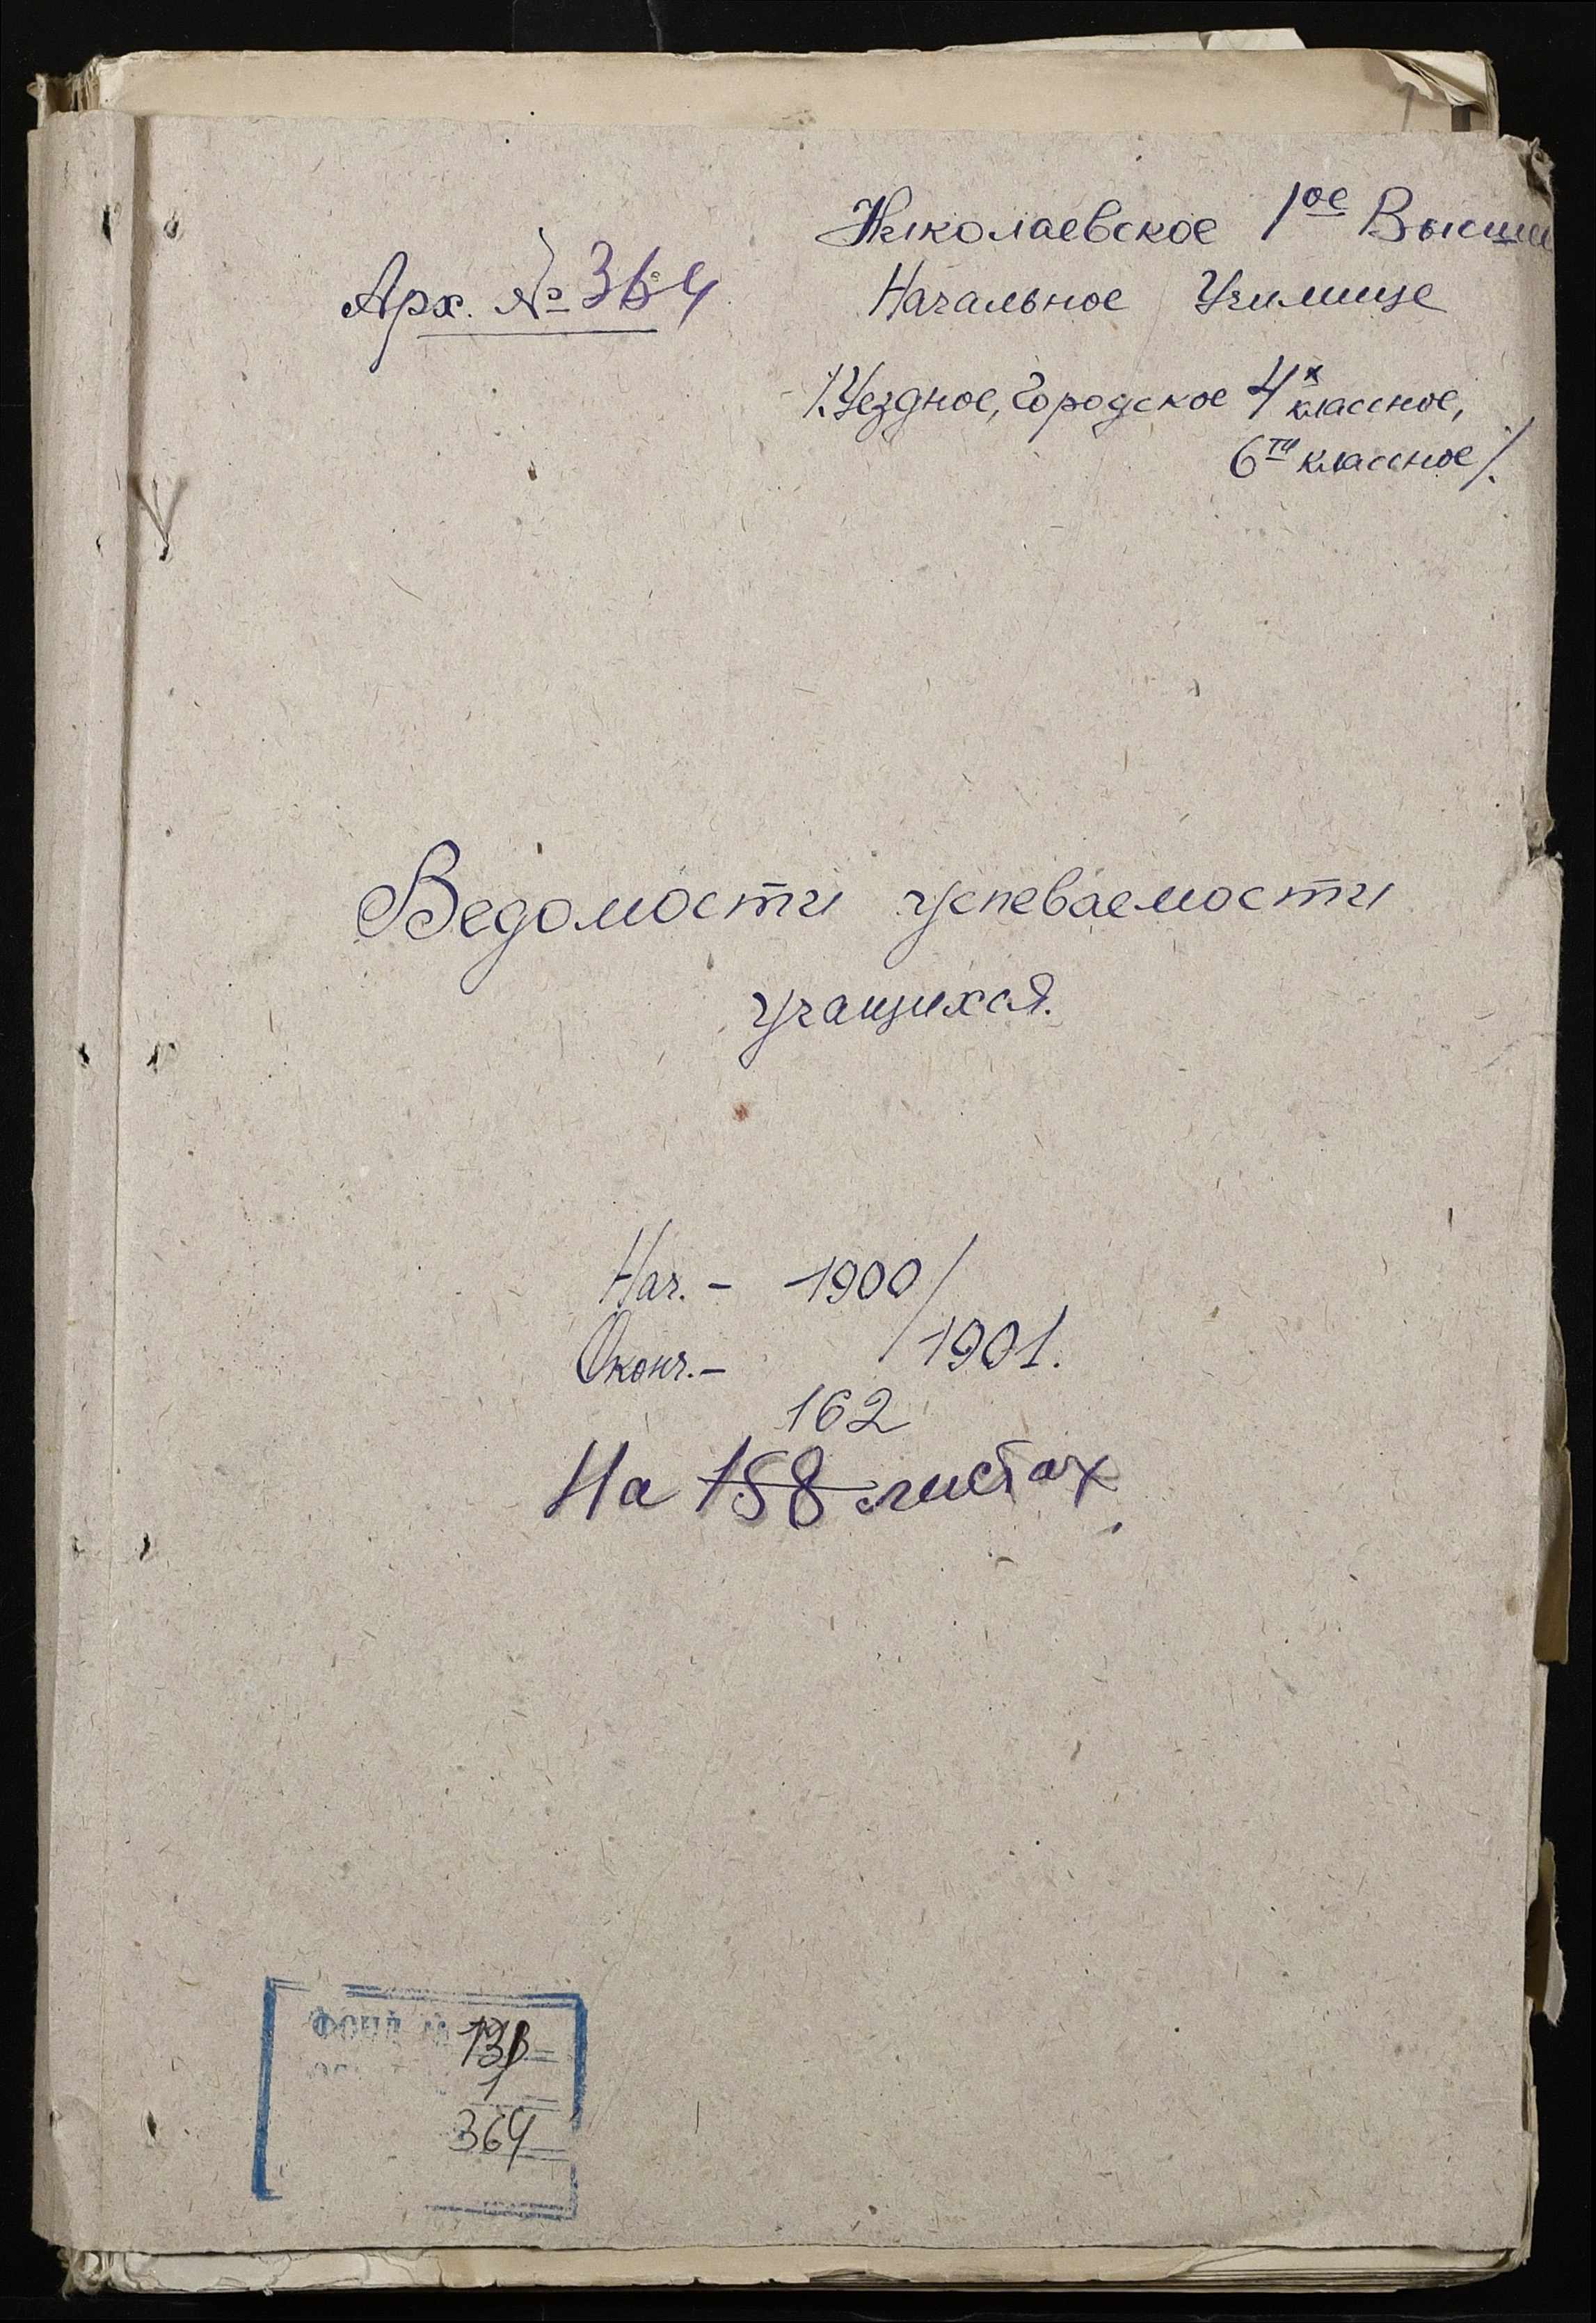 Николаевское 1ое Высше
Арх. № 364
Начальное Училище
/.Уездное, Городское 4х классное,
6ти классное/.
Ведомости успеваемости
учащихся.
Нач. - 1900/
Оконч. - 1901.
162
На 158 листах
ФОНД №
1
364